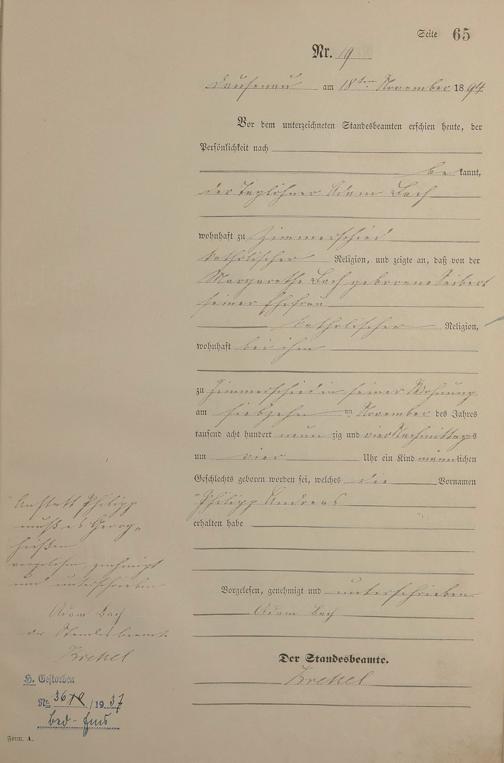 Seite 65
Nr. 19
Dausenau am 18ten November 1894
Vor dem unterzeichneten Standesbeamten erschien heute, der
Persönlichkeit nach
bekannt,
der Taglöhner Adam Bach
wohnhaft zu Zimmerschied
katholischer Religion, und zeigte an, daß von der
Margarethe Bach geborene Seibert
seiner Ehefrau
katholischer Religion,
wohnhaft bei ihm
zu Zimmerschied in seiner Wohnung
am siebzehn ten November des Jahres
tausend acht hundert neunzig und vier Nachmittags
um vier Uhr ein Kind männlichen
Geschlechts geboren worden sei, welches die Vornamen
Philipp Andreas
erhalten habe
Vorgelesen, genehmigt und unterschrieben
Adam Bach
Der Standesbeamte.
Krekel
Anstatt Philipp
muß es Georg
heißen
vorgelesen, genehmigt
und unterschrieben
Adam Bach
der Standesbeamte
Krekel
H. Gestorben
Nr. /1937
Form. A.